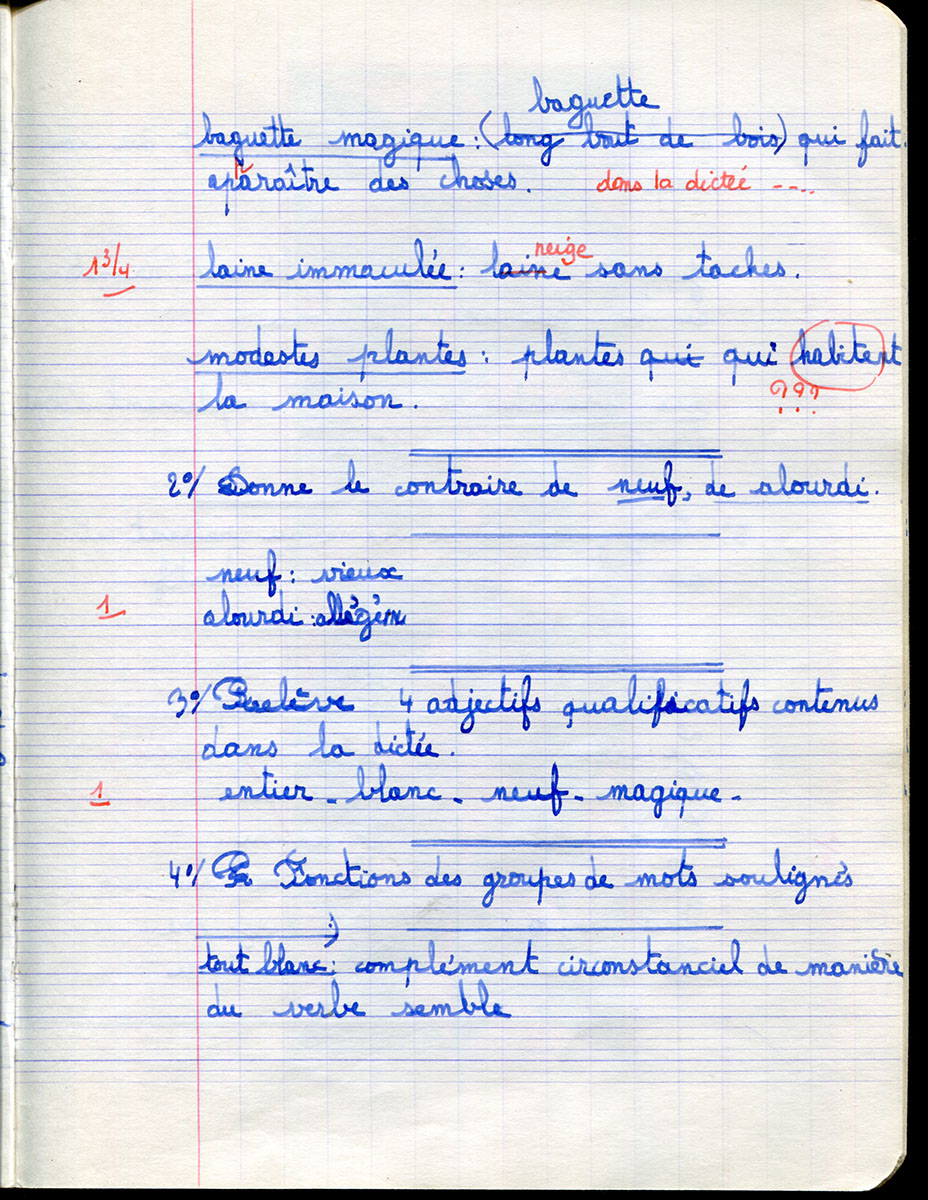 baguette
baguette magique : (long bout de bois) qui fait
aparaître des choses. dans la dictée ----
p
neige
1 3/4 laine immaculée : laine sans taches.
modestes plantes : plantes qui qui habitent
la maison. ???
2°/ Donne le contraire de neuf, de alourdi.
neuf : vieux
1 alourdi :
3°/ Relève 4 adjectifs qualificatifs contenus
dans la dictée.
1 entier - blanc - neuf - magique -
4°/ Fonctions des groupes de mots soulignés
tout blanc : complément circonstanciel de manière
du verbe semble